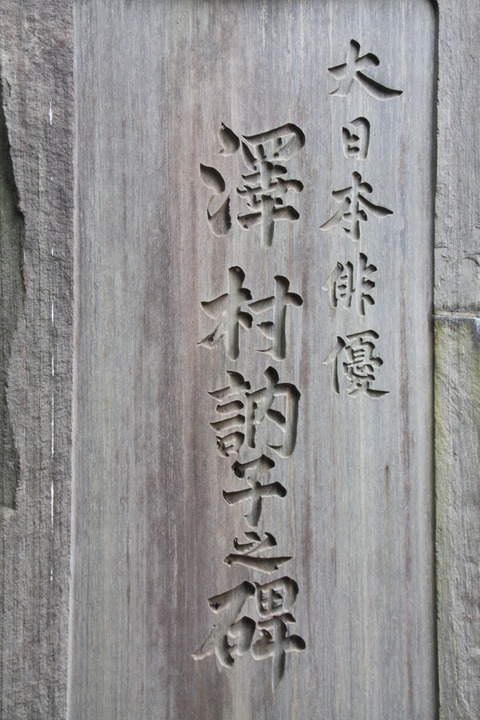 大日本俳優
澤村訥子之碑